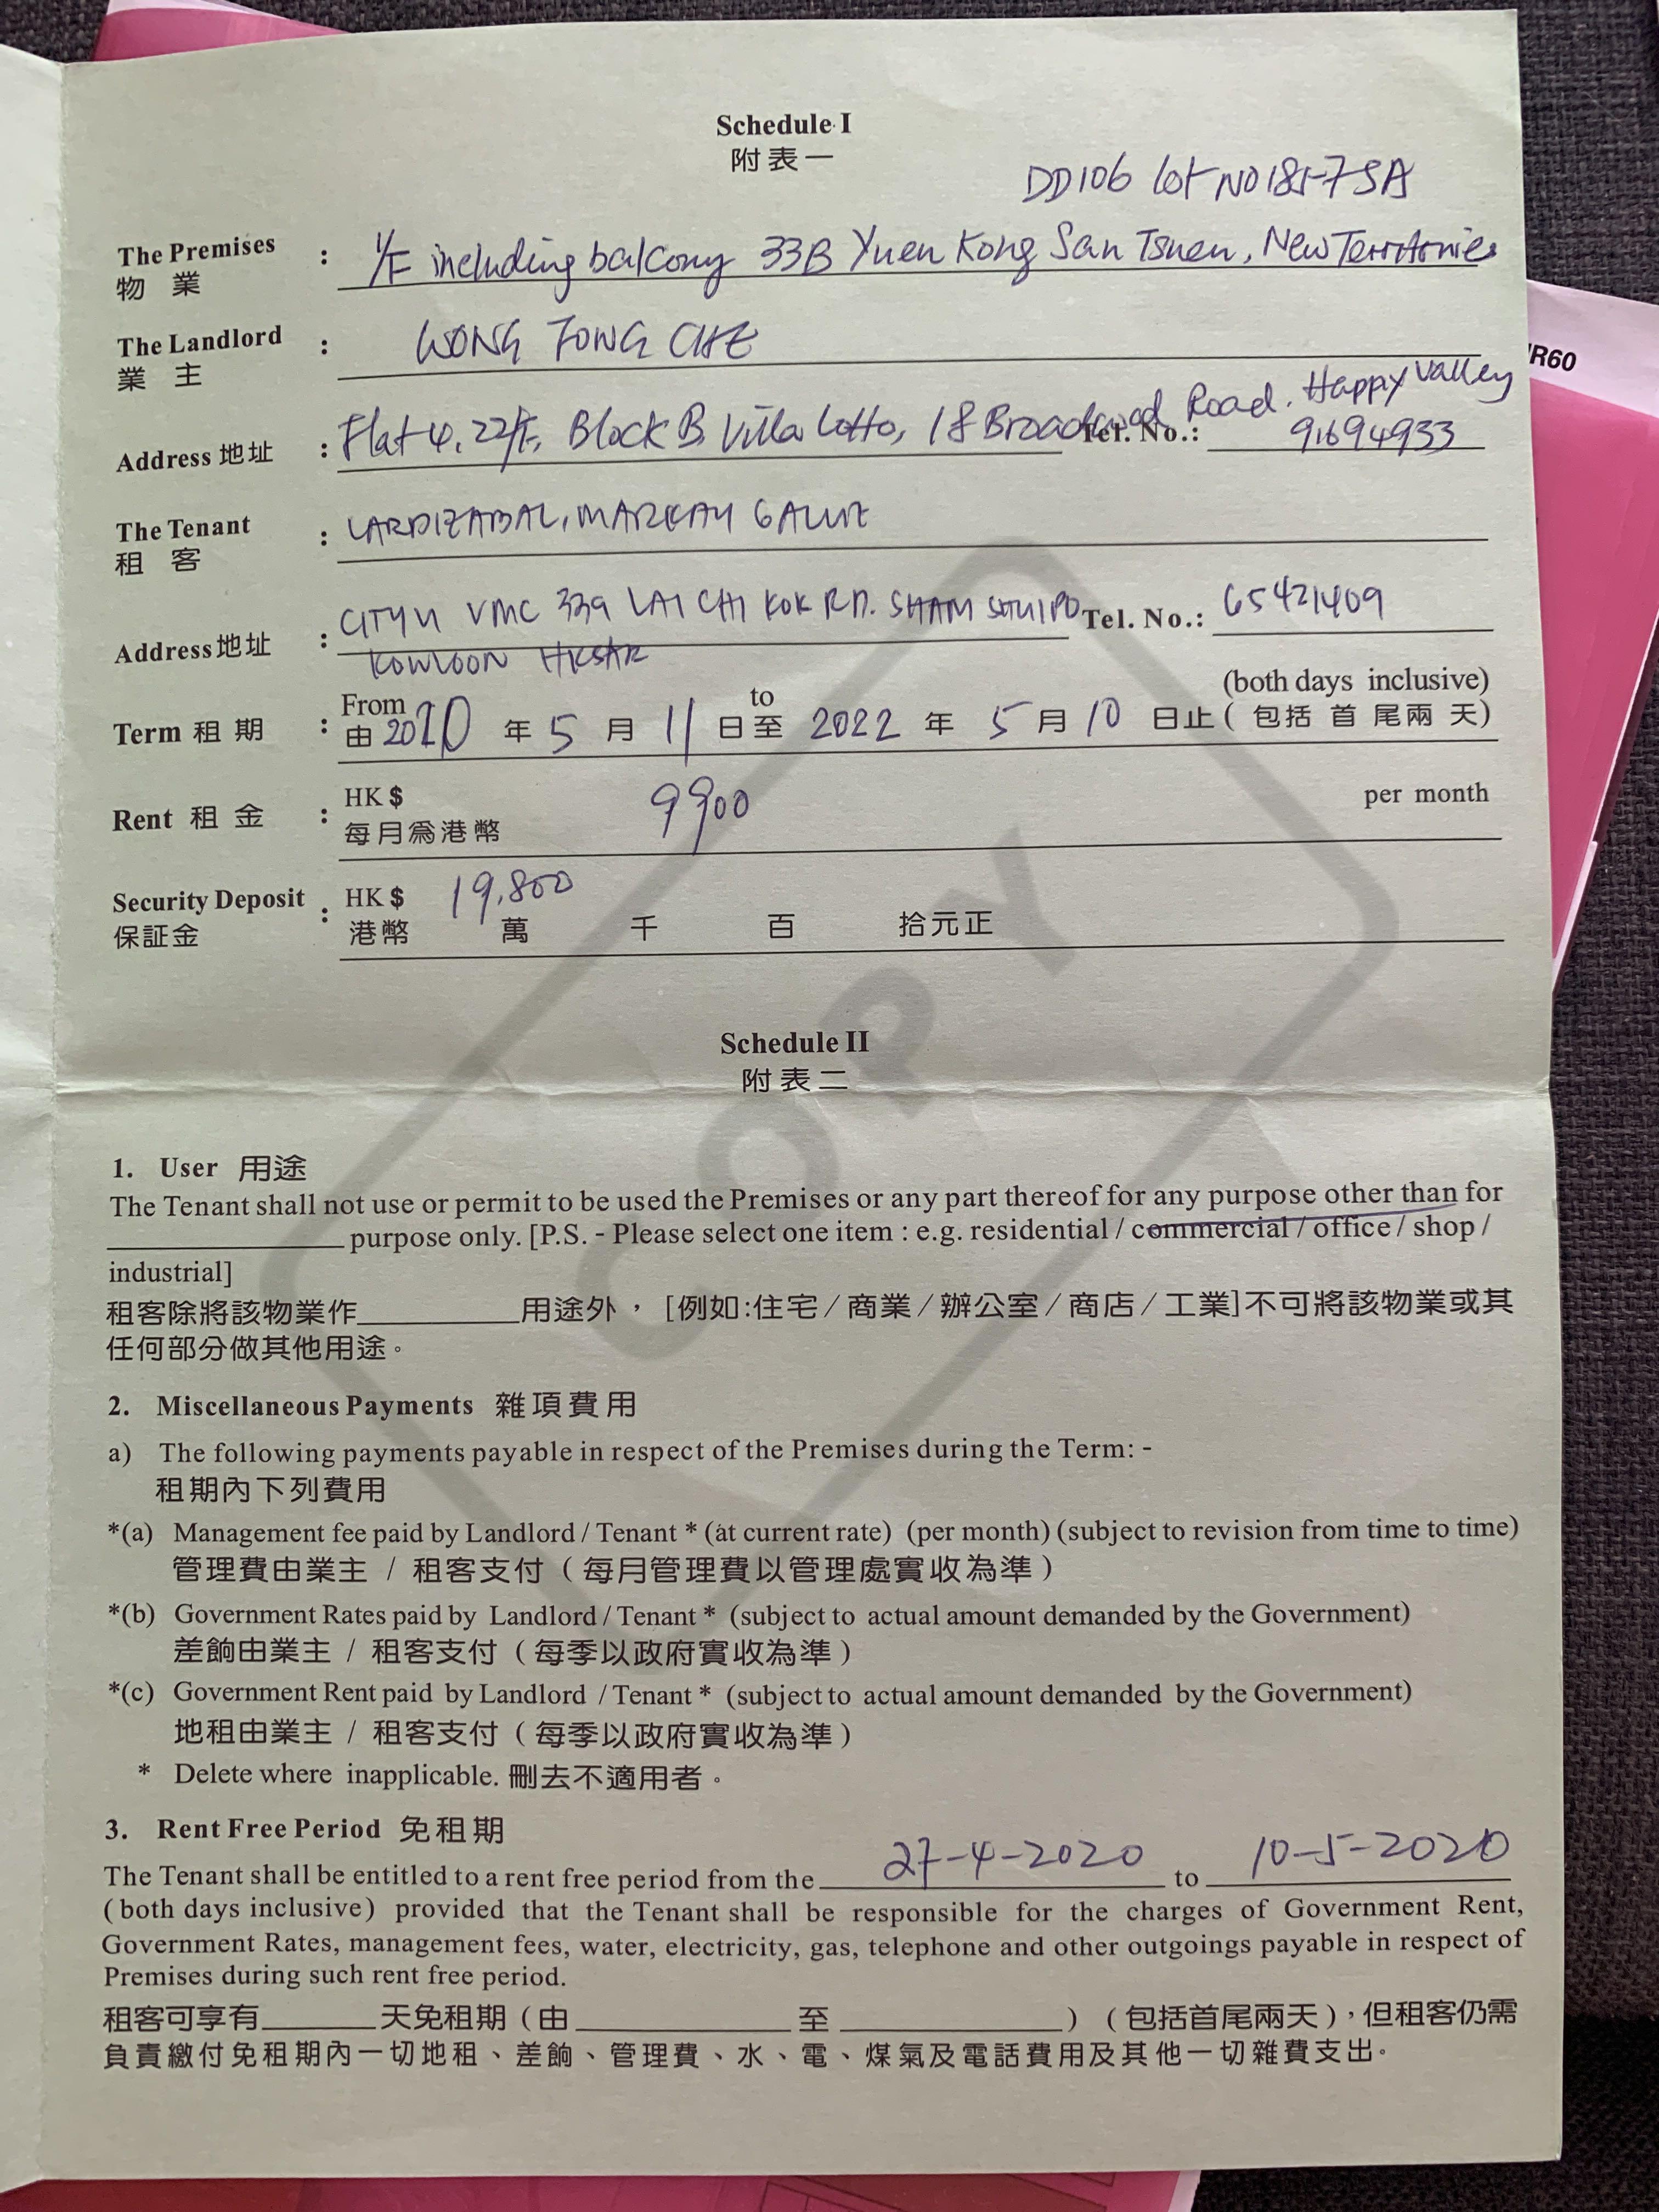 Schedule I
附表一
DD106 Lot NO 1857 SA
The Premises : 1/F including balcony 33B Yuen Kong San Tsuen, New Territories
物 業
The Landlord : WONG FONG CHE
業 主
Road, Happy Valley
Address 地址 : Flat 4, 22/F, Block B, Villa Lotto, 18 Broadwood Tel. No.: 91694933
The Tenant : LARDIZABAL, MARKAY GALUE
租 客
Address 地址 : CITYU VMC 339 LAI CHI KOK RD. SHAM SHUI PO Tel. No.: 65421409
KOWLOON HKSAR
From to (both days inclusive)
Term 租 期 : 由 2020 年 5 月 11 日至 2022 年 5 月 10 日止 ( 包括 首 尾兩 天)
HK $ 9900 per month
Rent 租 金 :
每月為港幣
Security Deposit : HK $ 19,800
保証金 港幣 萬 千 百 拾元正
Schedule II
附表二
1. User 用途
The Tenant shall not use or permit to be used the Premises or any part thereof for any purpose other than for
purpose only. [P.S. - Please select one item : e.g. residential / commercial / office / shop /
industrial]
租客除將該物業作________用途外， [例如:住宅／商業／辦公室／商店／工業]不可將該物業或其
任何部分做其他用途。
2. Miscellaneous Payments 雜項費用
a) The following payments payable in respect of the Premises during the Term: -
租期內下列費用
*(a) Management fee paid by Landlord / Tenant * (at current rate) (per month) (subject to revision from time to time)
管理費由業主 / 租客支付 ( 每月管理費以管理處實收為準 )
*(b) Government Rates paid by Landlord / Tenant * (subject to actual amount demanded by the Government)
差餉由業主 / 租客支付 ( 每季以政府實收為準 )
*(c) Government Rent paid by Landlord / Tenant * (subject to actual amount demanded by the Government)
地租由業主 / 租客支付 ( 每季以政府實收為準 )
* Delete where inapplicable. 刪去不適用者。
3. Rent Free Period 免租期
The Tenant shall be entitled to a rent free period from the 27-4-2020 to 10-5-2020
(both days inclusive) provided that the Tenant shall be responsible for the charges of Government Rent,
Government Rates, management fees, water, electricity, gas, telephone and other outgoings payable in respect of
Premises during such rent free period.
租客可享有______天免租期 ( 由 ________ 至 ________ ) ( 包括首尾兩天 )，但租客仍需
負責繳付免租期內一切地租、差餉、管理費、水、電、煤氣及電話費用及其他一切雜費支出。
COPY
R60